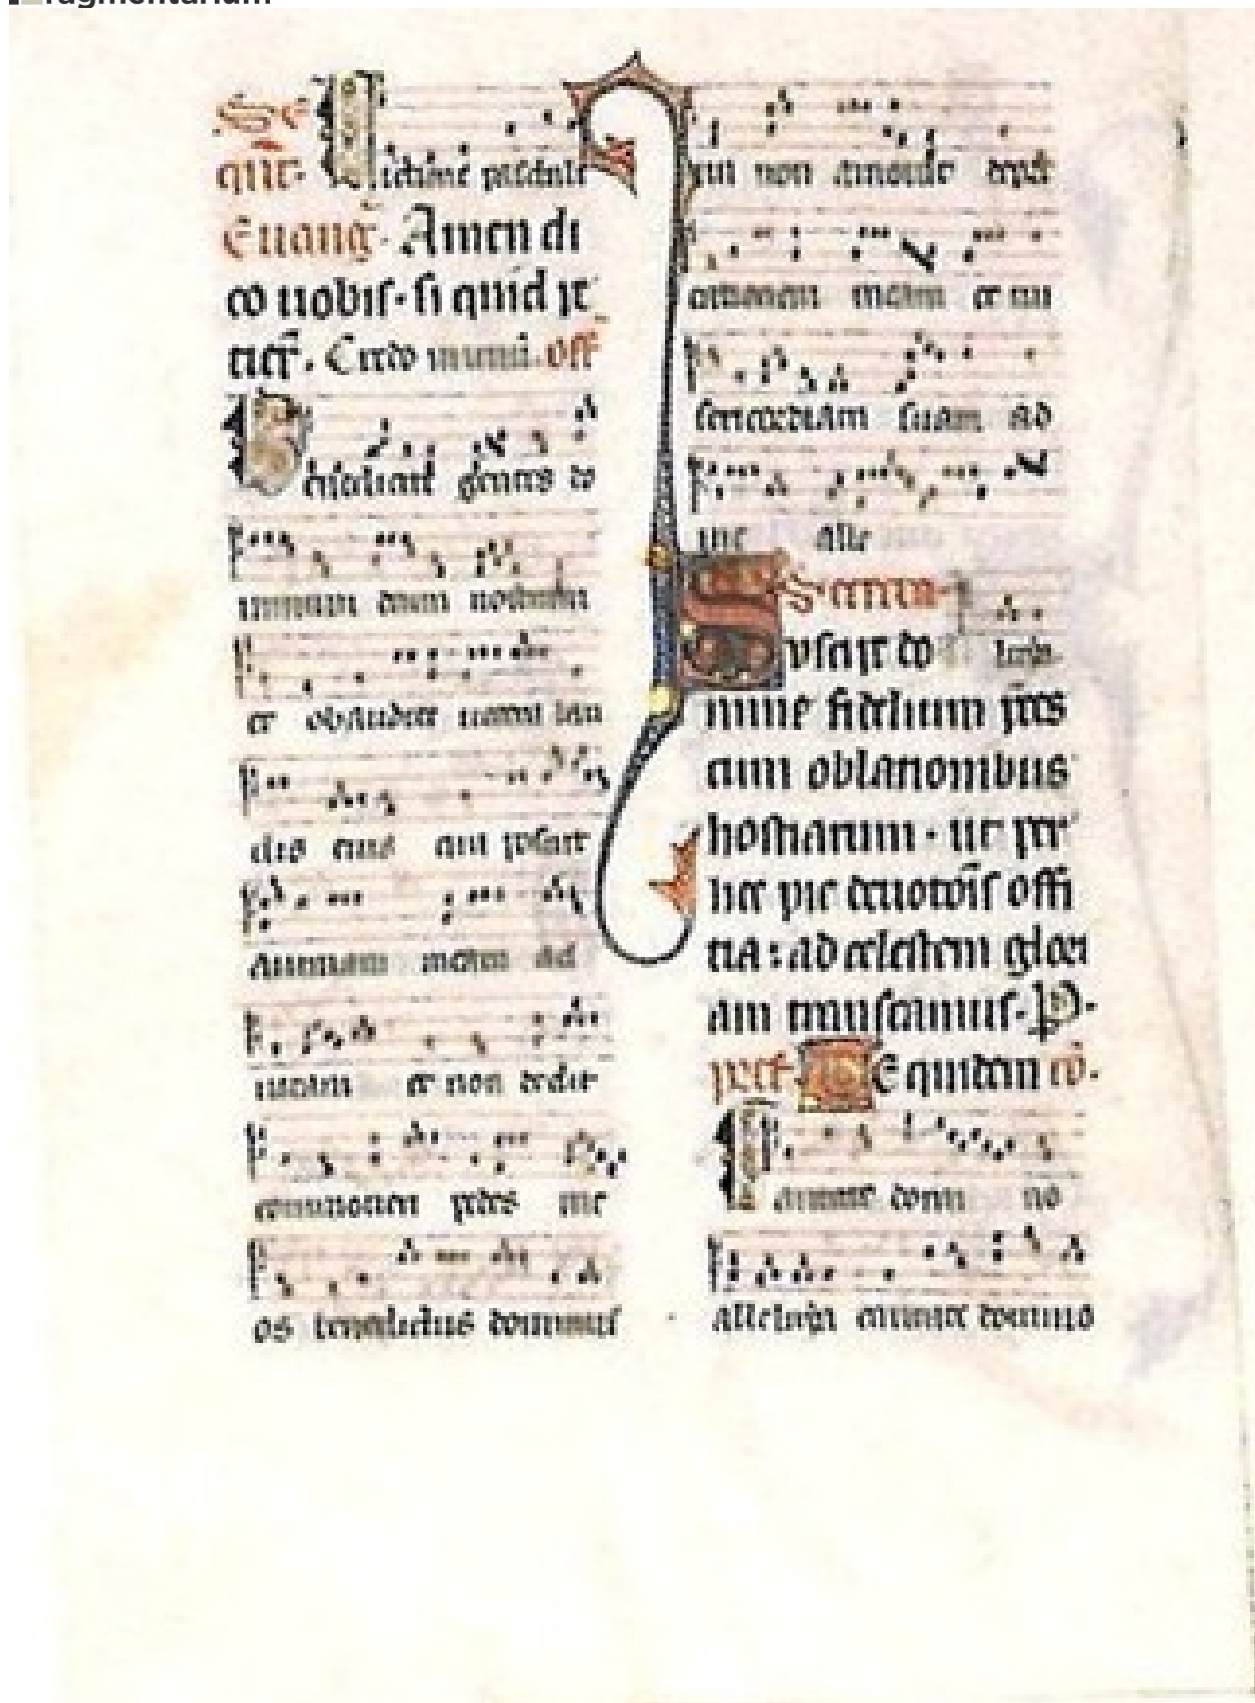 Se
quēt. Victime paschale
Euang. Amen di
co uobis. si quid pe
tieritis. Credo in unū. off
Benedicite gentes do
minum deum nostrum
et obaudite uocem lau
dis eius qui posuit
animam meam ad
uitam et non dedit
commoueri pedes me
os benedictus dominus
qui non amouit depreca
orationem meam et mi
sericordiam suam ad
me alle
Secreta luia
Suscipe do
mine fidelium p̄ces
cum oblationibus
hostiarum. ut per
hec pie deuotōis offi
tia: ad celestem glori
am transeamus. P.
pref. Te quidem cō.
Cantate domi no
alleluya cantate domino